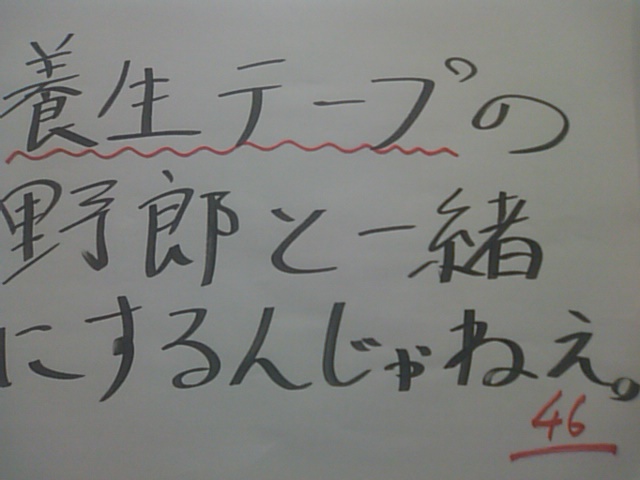 養生テープの
野郎と一緒
にするんじゃねぇ。
46